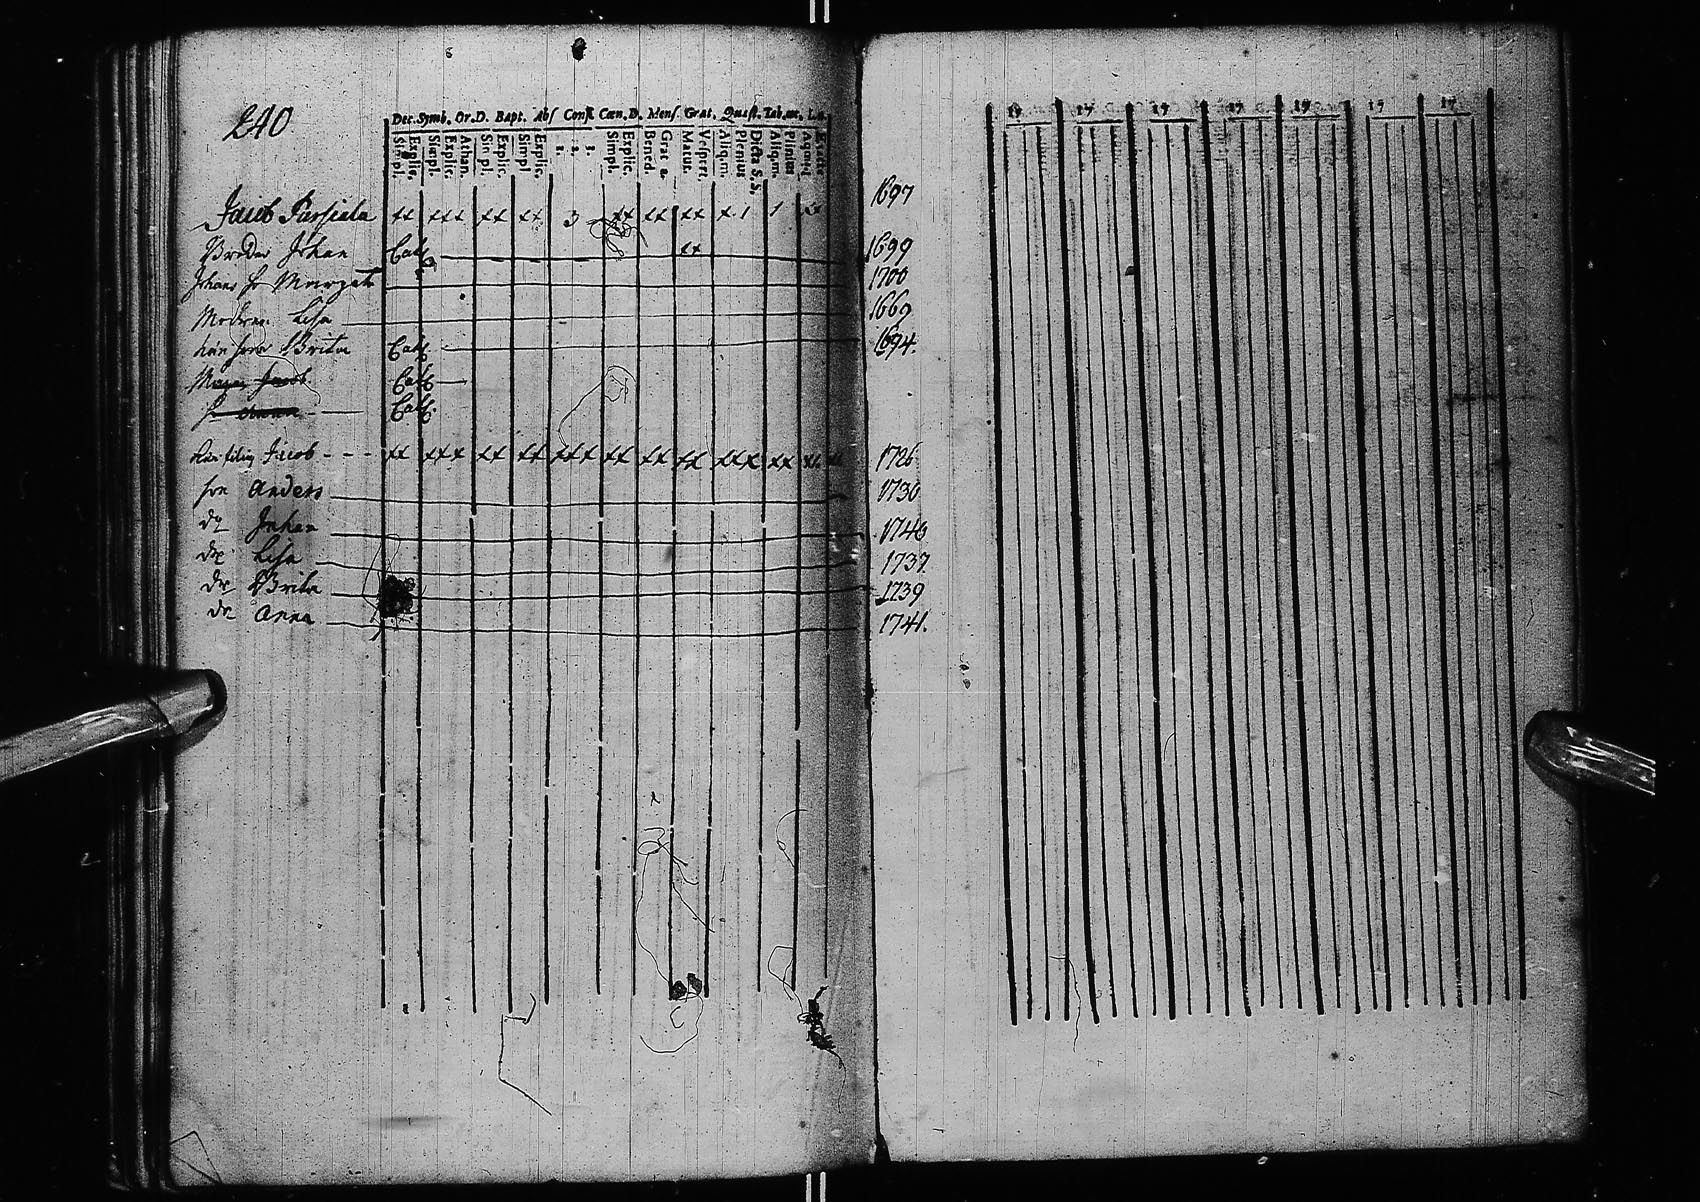 240
Dec. Symb. Or. D. Bapt. Abs Conf. Cœn. D. Mens. Grat. Quæst. Tab. œc.
Simpl. Explic. Simpl. Explic. Athan. Simpl. Explic. Simpl. Explic. 1. 2. 3. Simpl. Explic. Bened. Grat. a. Matut. Vespert. Aliqm. Plenius Dicta S.S. Aliqm. Plenius
17 17 17 17 17 17 17
Jacob xx xxx xx xx 3 xx xx xx x 1 1 xx 1697
Broder Johan Cat xx 1699
Johans h Margeta 1700
Modren Lisa 1669
Brita Cat 1694.
Jacob Cat
Cat
filius Jacob - - - xx xxx xx xx xxx xx xx xx xxx xx xx 1726
son Anders 1730
do Johan 1740
dr Lisa 1737
dr Brita 1739
dr Anna 1741.